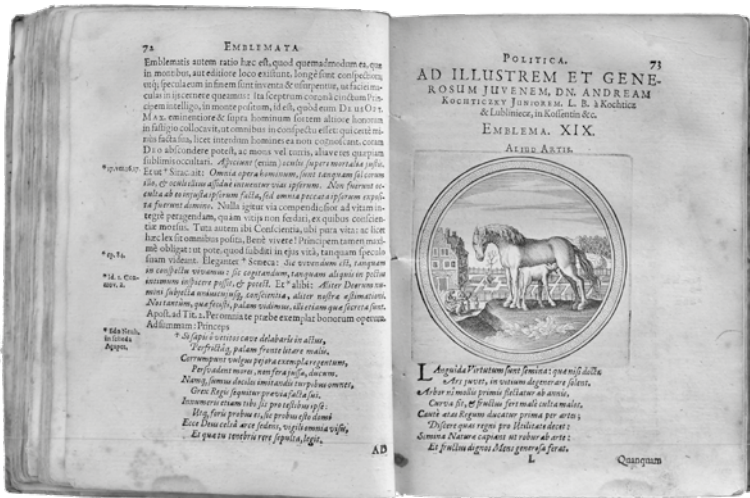 72 EMBLEMATA
Emblematis autem ratio hæc est, quod quemadmodum ea, quæ
in montibus, aut editiore loco existunt, longè sunt conspectiora,
in finem sunt inventa & usurpentur, ut facies
Ita sceptrum coronâ cinctum Prin-
cipem intelligo, in monte positum, id est, quòd eum DEUS OPT.
MAX. eminentiore & supra hominum sortem altiore honorum
in fastigio collocavit, ut omnibus in conspectu esset: qui
facta sua, licet intendum homines ea non cognoscant, coram
DEO abscondere potest, ac mons vel turris, aliave res quæpiam
sublimis occultari. Aspiciunt (enim) oculis superi mortalia justis.
Et ut Sirac. ait: Omnia opera hominum, sunt tanquam sol coram
illo, & oculi illius assiduè intuentur vias ipsorum. Non fuerunt oc-
culta ab eo injusta ipsorum facta, sed omnia peccata ipsorum exposi-
ta fuerunt domino. Nulla igitur via compendiosior ad vitam in-
tegrè peragendam, quàm vitijs non serdari, ex quibus conscien-
tiæ morsus. Tuta autem ibi Conscientia, ubi pura vita: ac licet
hæc lex sit omnibus posita, Benè vivere! Principem tamen maxi-
mè obligat: ut pote, quod subditi in ejus vitâ, tanquam speculo
suam videant. Eleganter Seneca: Sic vivendum est, tanquam
in conspectu vivamus: sic cogitandum, tanquam aliquis in pectus
intimum inspicere possit, & potest. Et alibi: Aliter Deorum nu-
mini subjecta conscientia, aliter nostra æstimationi.
Nos tantùm, quæ fecisti, palam vidimus, illi etiam quæ secreta sunt.
Apost. ad Tit. 2. Per omnia te præbe exemplar bonorum operum.
Ad summam: Princeps
Si sapis ô vetitos cave delabaris in actus,
palam fronte litare malis.
Corrumpunt vulgus pejora exempla regentum,
Persvadent mores, nen fera jussa, ducum.
Namq; sumus dociles imitandis turpibus omnes,
Grex Regis sequitur prævia facta sui.
Innumeris etiam tibi sis pro testibus ipse:
Utq; foris probus es, sis probus esto domi
Ecce Deus celsâ arce sedens, vigil omnia visit,
Et quæ tu tenebris rere sepulta, legit.
AD
POLITICA. 73
AD ILLUSTREM ET GENE-
ROSUM JUVENEM, DN. ANDREAM
KOCHTICZKY JUNIOREM. L. B. à Kochticz
& Lubliniecz, in Kossentin &c.
EMBLEMA. XIX.
ALIUD ARTIS.
LAnguida Virtutum sunt semina: quæ nisi docta
Ars juvet, in vitium degenerare solent.
Arbor ni mollis primis flectatur ab annis,
Curva fit, & fructus fert malè culta malos.
Cautè ætas Regum ducatur prima per artes;
Discere quas regni pro Utilitate decet:
Semina Naturæ capiant ut robur ab arte:
Et fructus dignos Mens generosa ferat.
L Quanquam